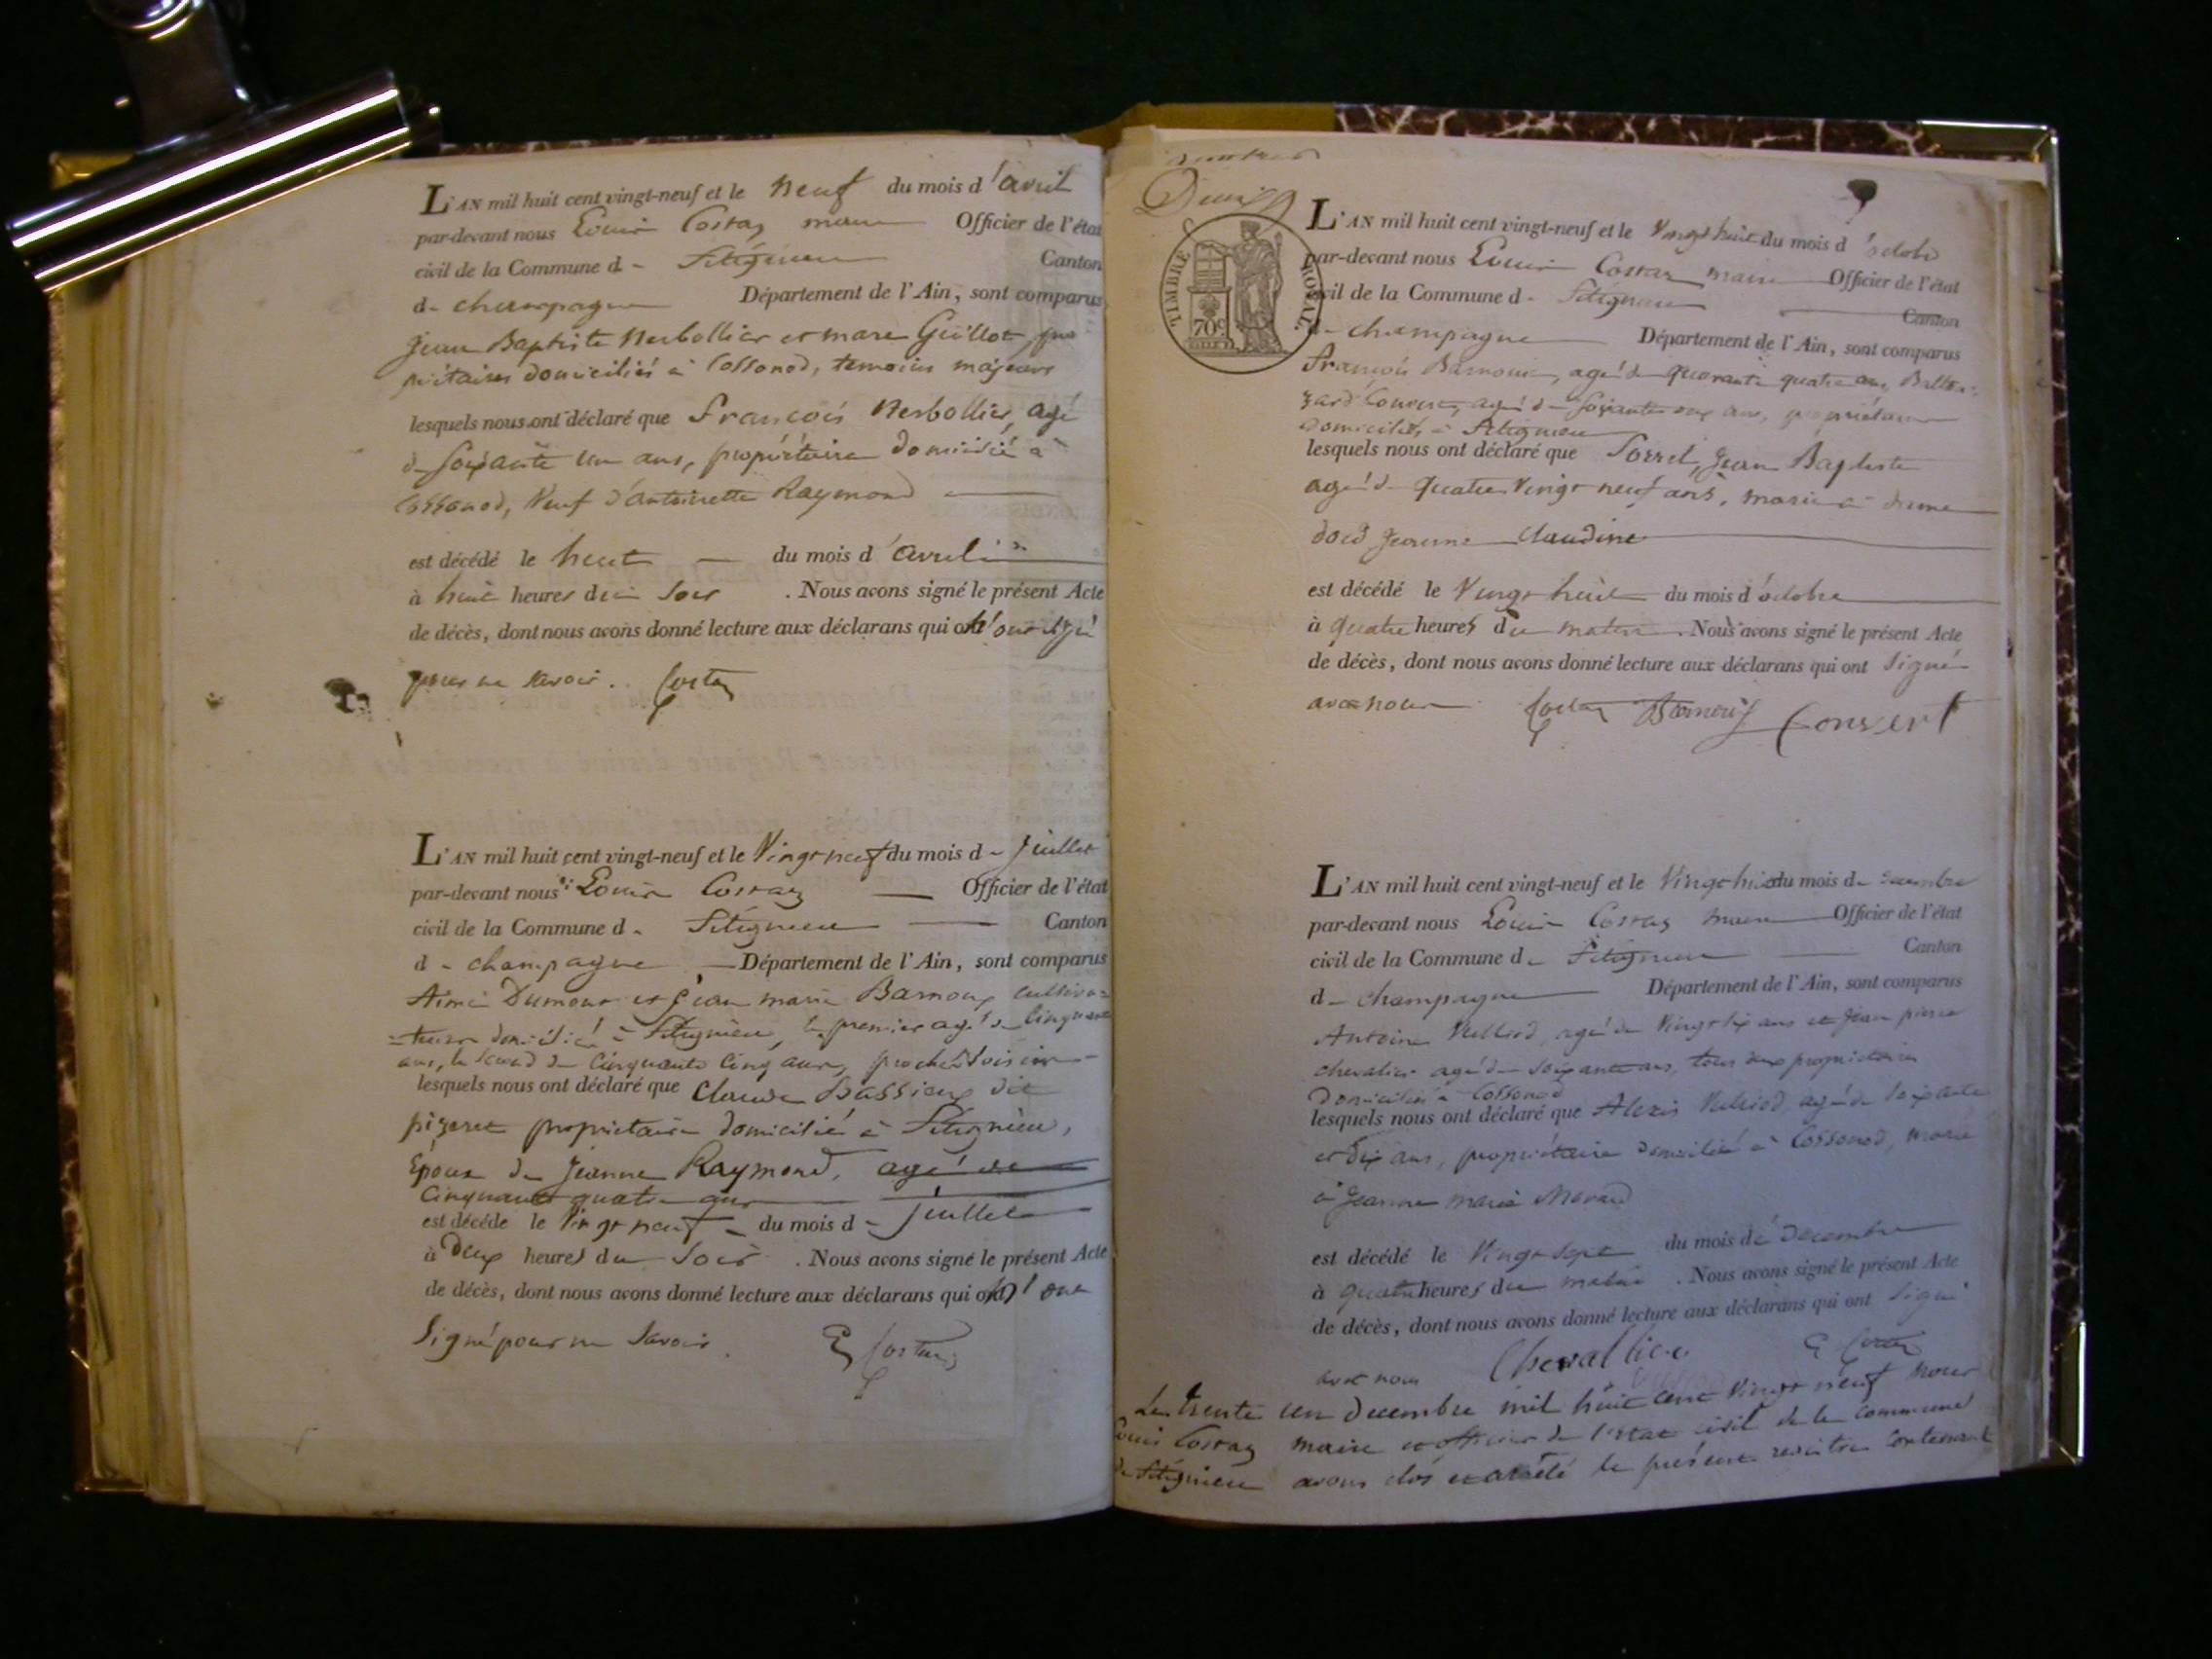 L'AN mil huit cent vingt-neuf et le neuf du mois d'avril
par-devant nous Louis Costaz maire Officier de l'état
civil de la Commune d- Sitignieu Canton
d- champagne Département de l'Ain, sont comparus
Jean Baptiste Nerbollier et marc Guillot pro
priétaires domiciliés à Cossonod, temoins majeurs
lesquels nous ont déclaré que François Nerbollier, agé
de soixante un ans, propriétaire domicilié à
Cossonod, Veuf d'antoinette Raymond
est décédé le huit du mois d'avril
à huit heures du soir . Nous avons signé le présent Acte
de décès, dont nous avons donné lecture aux déclarans qui n'ont signé
pour ne savoir. Costaz
L'AN mil huit cent vingt-neuf et le Vingt neuf du mois d- juillet
par-devant nous Louis Costaz Officier de l'état
civil de la Commune d- Sitignieu Canton
d- champagne Département de l'Ain, sont comparus
Aimé Dumont et jean marie Barnoux cultiva=
=teurs domicilié à Sitignieu, le premier agé de Cinquante
ans, le second de Cinquante Cinq ans, proches voisins
lesquels nous ont déclaré que Claude Bassieux dit
pizeret propriétaire domicilié à Sitignieu,
Epoux de Jeanne Raymond, agé de
Cinquante quatre ans
est décédé le Vingt neuf du mois d- juillet
à Deux heures du soir . Nous avons signé le présent Acte
de décès, dont nous avons donné lecture aux déclarans qui n'ont
Signé pour ne savoir. Costaz
Deux
TIMBRE ROYAL.
70c
L'AN mil huit cent vingt-neuf et le Vingt huit du mois d'octobre
par-devant nous Louis Costaz maire Officier de l'état
civil de la Commune d- Sitignieu Canton
d- champagne Département de l'Ain, sont comparus
François Barnoux, agé de quarante quatre ans, Baltha=
zard Convert, agé de soixante ans, propriétaires
domiciliés à Sitignieu
lesquels nous ont déclaré que Sorrel, Jean Baptiste
agé de quatre Vingt neuf ans, marié à
Claudine
est décédé le Vingt huit du mois d'octobre
à quatre heures du matin. Nous avons signé le présent Acte
de décès, dont nous avons donné lecture aux déclarans qui ont signé
avec nous Costaz Barnoux Convert
L'AN mil huit cent vingt-neuf et le Vingt huit du mois de decembre
par-devant nous Louis Costaz maire Officier de l'état
civil de la Commune d- Sitignieu Canton
d- champagne Département de l'Ain, sont comparus
Antoine Vulliod, agé de Vingt six ans et jean pierre
chevalier agé de soixante ans, tous deux propriétaires
Domiciliés à Cossonod
lesquels nous ont déclaré que Alexis Vulliod, agé de soixante
et dix ans, propriétaire domicilié à Cossonod, marié
à Jeanne marie
est décédé le Vingt sept du mois de decembre
à quatre heures du matin . Nous avons signé le présent Acte
de décès, dont nous avons donné lecture aux déclarans qui ont signé
avec nous Chevallier Costaz
Le trente un decembre mil huit cent Vingt neuf nous
Louis Costaz maire et officier de l'etat civil de la commune
de Sitignieu avons clos et arrêté le présent registre contenant